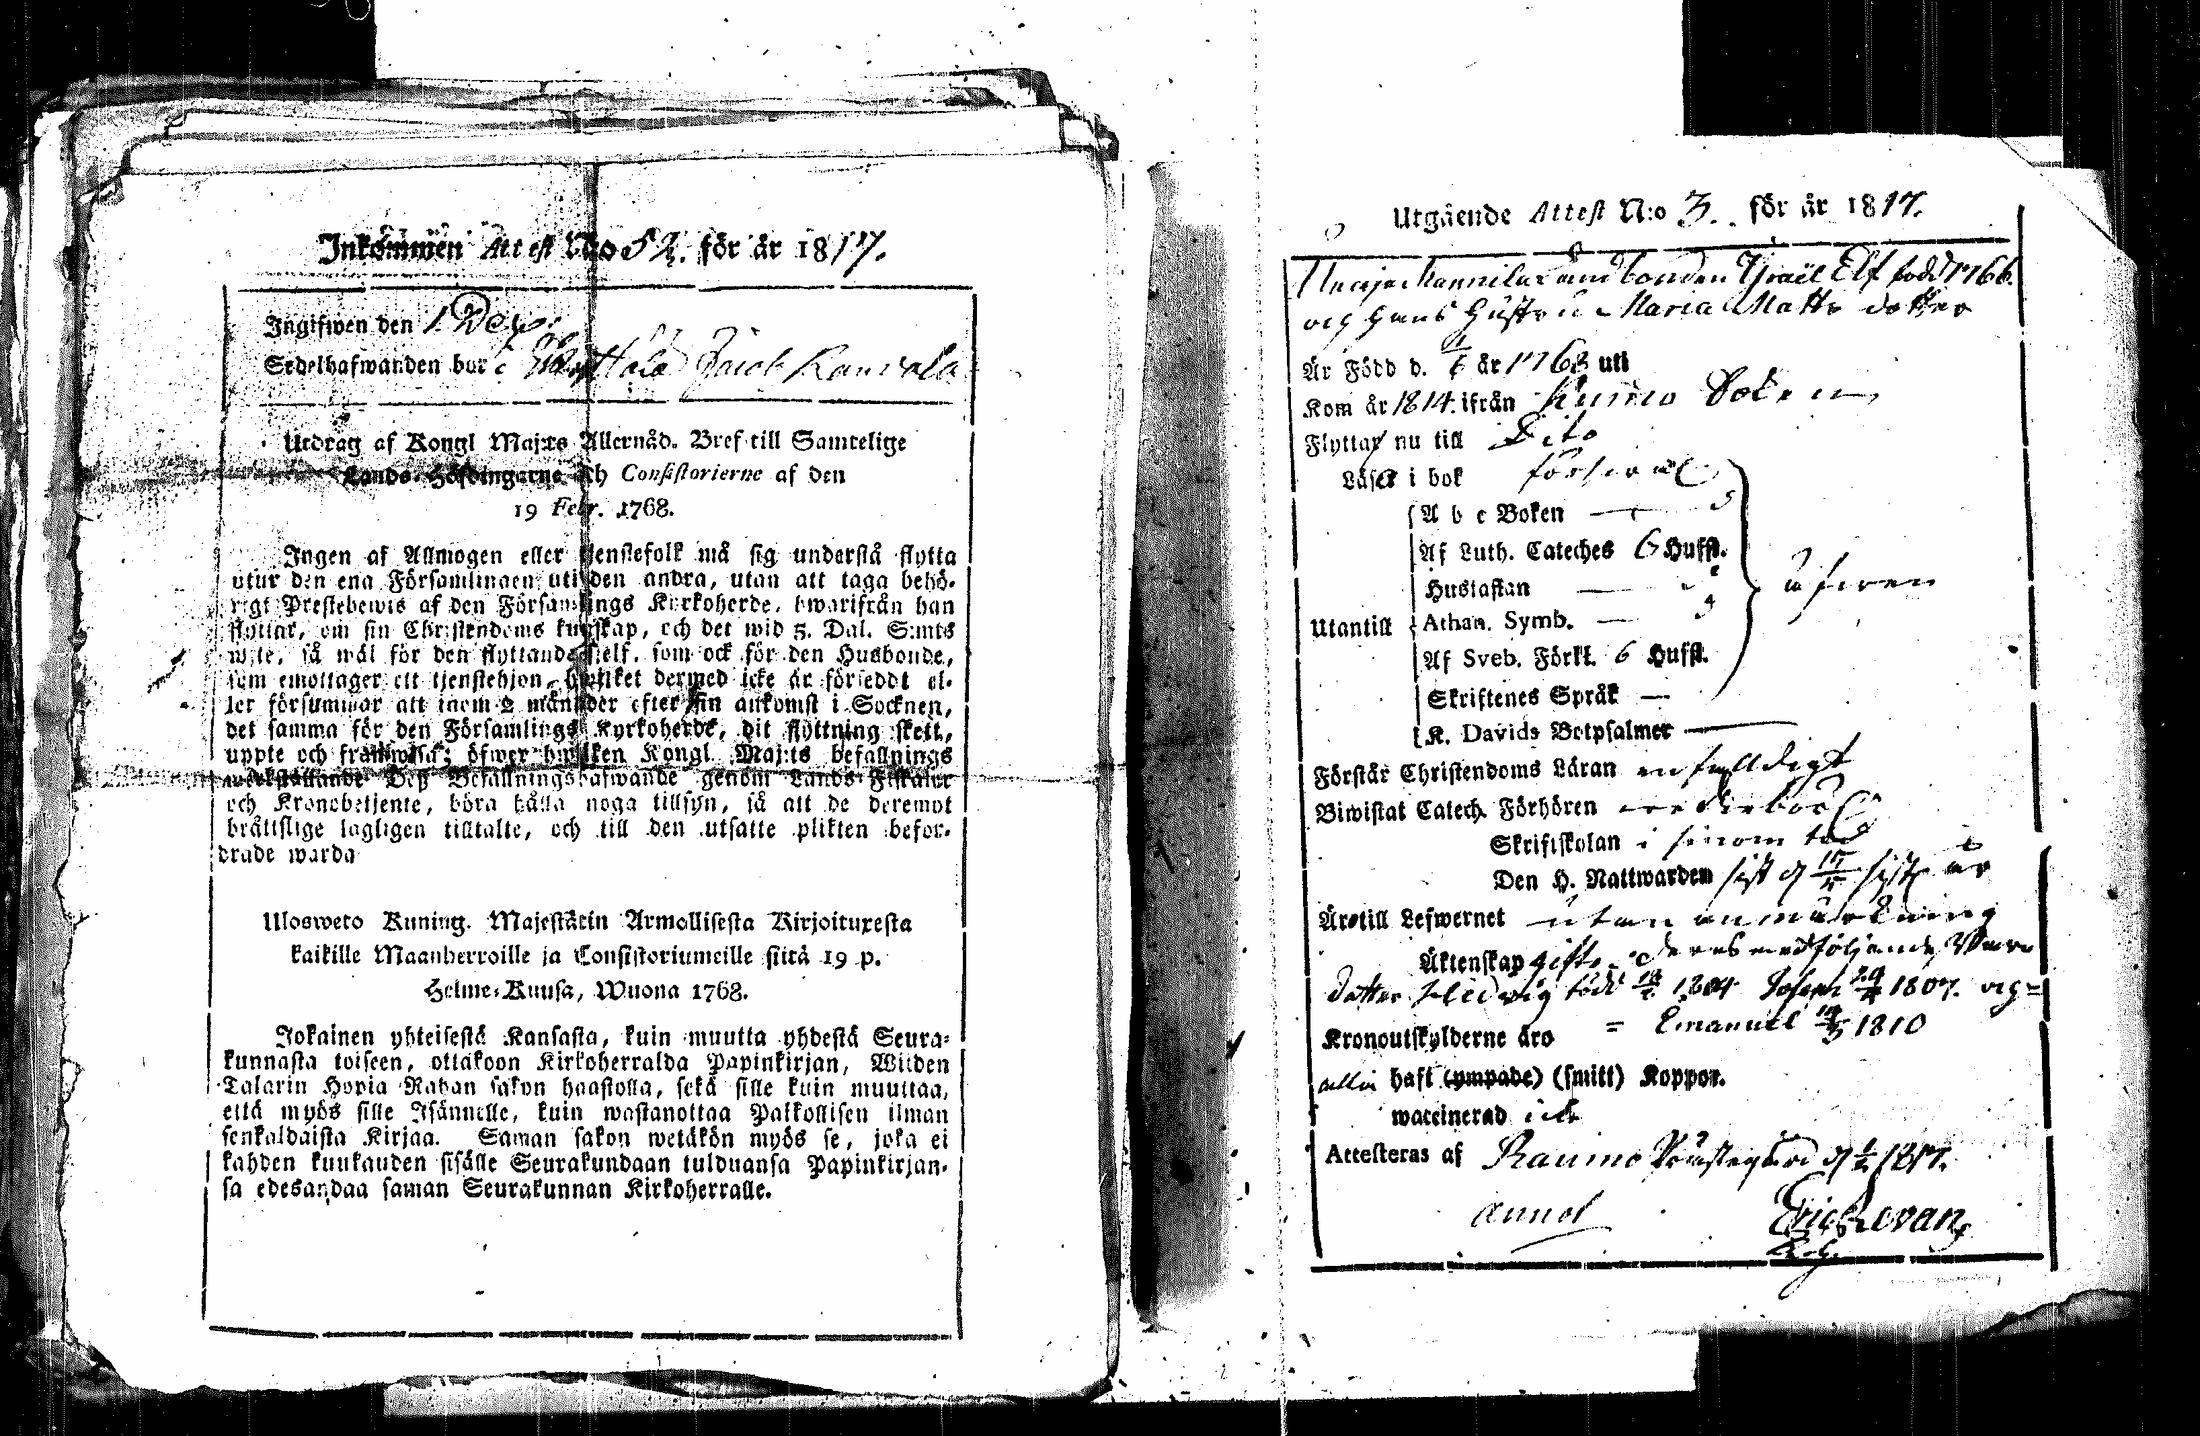 Inkommen Attest N:o 52. för år 1817.
Ingifwen den 1. Dec
Sedelhafwanden bor i Jacob Kauvala
Utdrag af Kongl Maj:ts Allernåd. Bref till Samtelige
Lands-Höfdingarne Ch Consistorierne af den
19 Febr. 1768.
Ingen af Allmogen eller tjenstefolk må sig understå flytta
utur den ena Församlingen uti den andra, utan att taga behö-
rigt Prestebewis af den Församlings Kyrkoherde, hwarifrån han
flyttar, om sin Christendoms kunskap, och det wid 5. Dal. S:mts
wite, så wäl för den flyttande sjelf, som ock för den Husbonde,
som emottager ett tjenstehjon, hwilket dermed icke är förseddt el-
ler försummar att inom 2 månader efter sin ankomst i Socknen,
det samma för den Församlings Kyrkoherde, dit flyttning skett,
uppte och framwisa; öfwer hwilken Kongl. Maj:ts befallnings
werkställande Deß Befallningshafwande genom Lands-Fiskaler
och Kronobetjente, böra hålla noga tillsyn, så att de deremot
bråttslige lagligen tilltalte, och till den utsatte plikten befor-
drade warda
Ulosweto Kuning. Majestätin Armollisesta Kirjoituxesta
kaikille Maanherroille ja Consistoriumeille siitä 19 p.
Helme-Kuusa, Wuona 1768.
Jokainen yhteisestä Kansasta, kuin muutta yhdestä Seura-
kunnasta toiseen, ottakoon Kirkoherralda Papinkirjan, Wiiden
Talarin Hopia Rahan sakon haastolla, sekä sille kuin muuttaa,
että myös sille Isännelle, kuin wastanottaa Palkollisen ilman
senkaldaista Kirjaa. Saman sakon wetäkön myös se, joka ei
kahden kuukauden sisälle Seurakundaan tulduansa Papinkirjan-
sa edesandaa saman Seurakunnan Kirkoherralle.
Utgående Attest N:o 3. för år 1817.
Landbonden Israël Elf född 1766.
och hans hustru Maria Matts dotter
Är Född d. år 1763 uti
Kom år 1814. ifrån Kumo Soken
Flyttar nu till Dito
Läser i bok försvarl.
Utantill
A b c Boken —
Af Luth. Cateches 6 Hufst.
Hustaflan —
Athan. Symb. —
Af Sveb. Förkl. 6 Hufst.
Skriftenes Språk —
K. Davids Botpsalmer —
äfwen
Förstår Christendoms Läran enfaldigt
Biwistat Catech. Förhören wederbörl.
Skriftskolan i sinom tid
Den H. Nattwarden sist d. sistl. år
Äro till Lefwernet utan anmärkning
Äktenskap gifte. deras medföljande Barn
dotter Hedwig född 1804 Joseph 1807. och =
= Emanuel 1810
Kronoutskylderne äro
alla haft (ympade) (smitt) Koppor.
waccinerad icke
Attesteras af Raumo Prästegård d. 1817.
Eric Revan